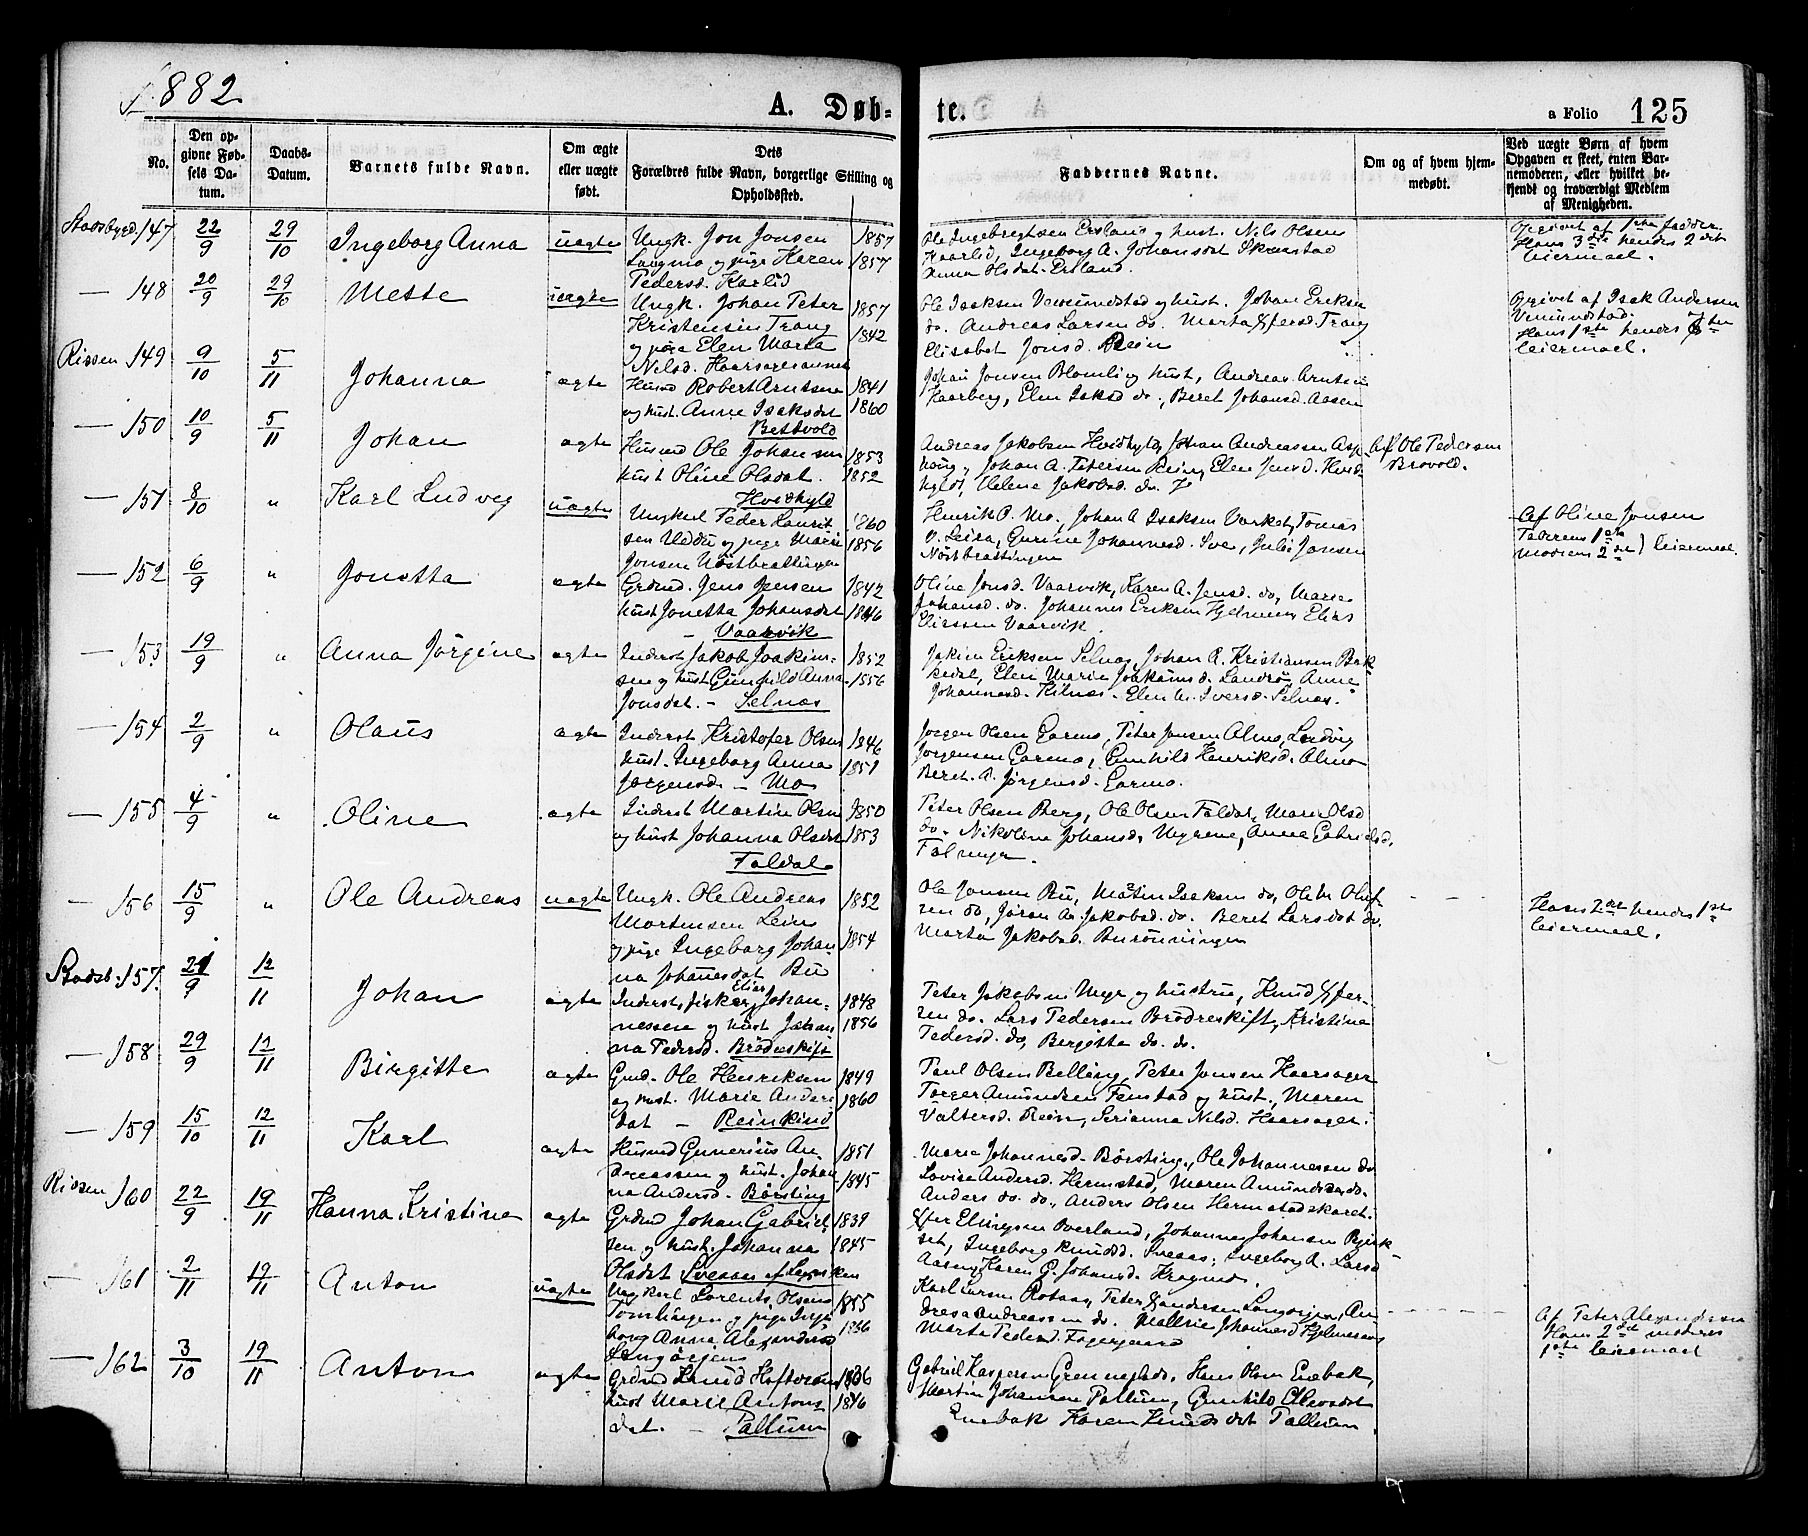 1882
A. Døb- te.
a Folio 125
No.
Den op-
givne Fød-
sels Da-
tum.
Daabs-
Datum.
Barnets fulde Navn.
Om ægte
eller uægte
født.
Dets
Forældres fulde Navn, borgerlige Stilling og
Opholdssted.
Faddernes Navne.
Om og af hvem hjem-
medøbt.
Ved uægte Børn af hvem
Opgaven er skeet, enten Bar-
nemoderen, eller hvilket be-
kjendt og troværdigt Medlem
af Menigheden.
Stadsbygd. 147 22/9 29/10 Ingeborg Anna uægte
Ungk. Jon Jonsen 1857
Langmo og pige Karen 1857
Pedersd. Karlid
Ole Ingebregtsen Ersland og hust. Nils Olsen
Kaarlid, Ingeborg A. Johansdt
Anna Olsdat. Ersland.
Opgivet af 1ste fadder
Hans 3die hendes 2det
leiermaal.
— 148 20/9 29/10 Mette uægte
Ungk. Johan Peter 1857
Kristensen Trang 1842
og pige Elen Marta
Nilsd. Haarsageraunet
Ole Isaksen Vemundstad og hust. Johan Eriksen
do. Andreas Larsen do. Marta Trang
Elisabet Jonsd. Rein
Opgivet af Isak Andersen
Vemundstad.
Hans 1ste hendes
leiermaal.
Rissen 149 9/10 5/11 Johanna ægte
Husmd Robert Arntsen 1841
og hust. Anne Isaksdat 1860
Bettvold
Johan Jonsen Blomli og hust, Andreas Arntsen
Haarberg, Elen Isaksd do., Beret Johansd. Aasen
— 150 10/9 5/11 Johan ægte
Husmd Ole Johansen 1853
hust Oline Olsdat. 1852
Hvidhyld
Andreas Jakobsen Hvidhyld, Johan Andreassen Asp-
haug, Johan A. Petersen Rein, Elen Jensd. Hvid-
hyld, Helene Jakobsd. do.
Af Ole Pedersen
Brovold.
— 151 8/10 " Karl Ludvig uægte
Ungkarl Peder Laurit 1860
sen Uddu og pige Marie 1856
Jonsen Nöstbrattingen
Henrik P. Mo, Johan A Isaksen Tomas
Gurine Johannesd. Sve, Julie Jonsen
Nöstbrattingen
Af Oline Jonsen
Faderens 1ste
Moderens 2det leiermaal.
— 152 6/9 " Jonetta ægte
Grdmd. Jens Jensen 1842
hust Jonetta Johansdat 1846
— Vaarvik
Oline Jonsd. Vaarvik, Karen A. Jensd. do, Marie
Johansd. do. Johannes Eriksen Elias
Eliassen Vaarvik.
— 153 19/9 " Anna Jørgine ægte
Inderst Jakob Joakim- 1852
sen og hust Gunhild Anna 1556
Jonsdat. — Selnæs
Jakim Eriksen Selnæs, Johan A. Kristiansen Bak-
kedal, Elen Marie Joakimsd. Anne
Johannesd. Elen M. Iversd. Selnæs.
— 154 2/9 " Olaus ægte
Inderst Kristofer Olsen 1846
hust. Ingeborg Anna 1851
Jørgensd — Mo
Jørgen Olsen Garmo, Peter Jonsen Almo, Ludvig
Jørgensen Garmo, Gunhild Henriksd. Almo
Beret. A. Jørgensd. Garmo.
— 155 4/9 " Oline ægte
Inderst Martin Olsen 1850
og hust Johanna Olsdat 1853
Foldal
Peter Olsen Berg, Ole Olsen Foldal, Marie Olsd
do. Nikoline Johansd. Myrene, Anne Gabrielsd.
— 156 15/9 " Ole Andreas uægte
Ungk. Ole Andreas 1852
Mortensen Lein
og pige Ingeborg Johan- 1854
na Johannesdat Bu
Ole Jonsen Bu, Martin Isaksen do, Ole M Oluf-
sen do, Jøran A. Jakobsd. do. Beret Larsdat do.
Marta Jakobsd. Burönningen
Hans 2det hendes 1ste
leiermaal.
Stadsb. 157. 21/9 12/11 Johan ægte
Inderst, fisker Elias Johan- 1848
nessen og hust Johan 1856
na Pedersd. Brödreskift
Peter Jakobsen Myr og hustru, Knud
sen do. Lars Pedersen Brödreskift, Kristina
Pedersd. do, Bergitta do. do.
— 158 29/9 12/11 Birgitte ægte
Grmd. Ole Henriksen 1849
og hust. Marie Anders 1860
dat — Reinkind
Paul Olsen Belling, Peter Jonsen Haarsager
Torger Amundsen Fenstad og hust., Maren
Valtersd. Rein, Serianna Nilsd. Haarsager.
— 159 15/10 12/11 Karl ægte
Husmd Gunerius An- 1851
dreassen og hust. Johan 1845
na Andersd. Börsting
Marie Johannesd. Börsting, Ole Johannessen do
Lovise Andersd. Hermstad, Maren Amundsd do.
Anders do. do., Anders Olsen Hermstadskaret.
Rissen 160 22/9 19/11 Hanna Kristina ægte
Grdmd Johan Gabriel- 1839
sen og hust. Johanna 1845
Olsdat Sveaas af
Elingsen Overland, Johannes Johansen
set, Ingeborg Knudsd. Sveaas, Ingeborg A. Larsd
Aasen, Karen G. Johansd. Kragmo.
— 161 2/11 19/11 Anton uægte
Ungkarl Lorents Olsen 1855
og pige Inge
borg Anna Alexandersd
Karl Larsen Rotaas, Peter An-
dreas Andreassen do.
Marta Pedersd.
Af Peter Alexandersen
Hans 2det moderens
1ste leiermaal
— 162 3/10 19/11 Anton ægte
Grdmd Knud 1836
hust Marie Antons 1846
dat. — Pallum
Gabriel Kaspersen Hans Olsen Enebak,
Martin Johansen Pallum, Gunhild
Enebak Karen Knudsdat Pallum.